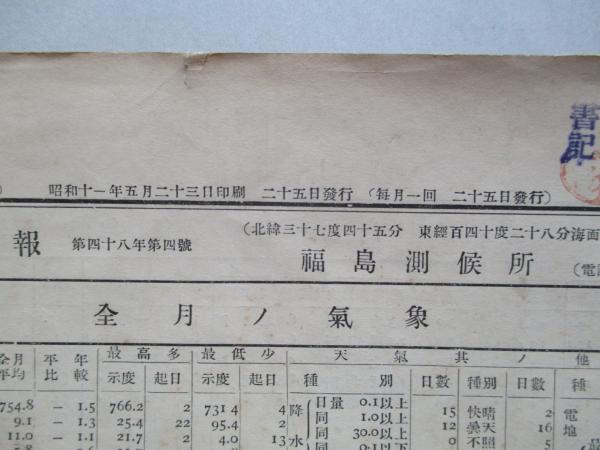 書記
昭和十一年五月二十三日印刷 二十五日發行 (每月一回 二十五日發行)
報 第四十八年第四號 (北緯三十七度四十五分 東經百四十度二十八分海面
福島測候所 (電
全月ノ氣象
全月平均 平年比較 最高多 最低少 天氣其ノ他
示度 起日 示度 起日 種別 日數 種別 日數 種
754.8 － 1.5 766.2 2 731.4 4 降 日量 0.1以上 15 快晴 2 電
9.1 － 1.3 25.4 22 95.4 2 同 1.0以上 12 曇天 16 地
11.0 － 1.1 21.7 2 4.0 13 水 同 30.0以上 0 不照 5
同 0.1以下